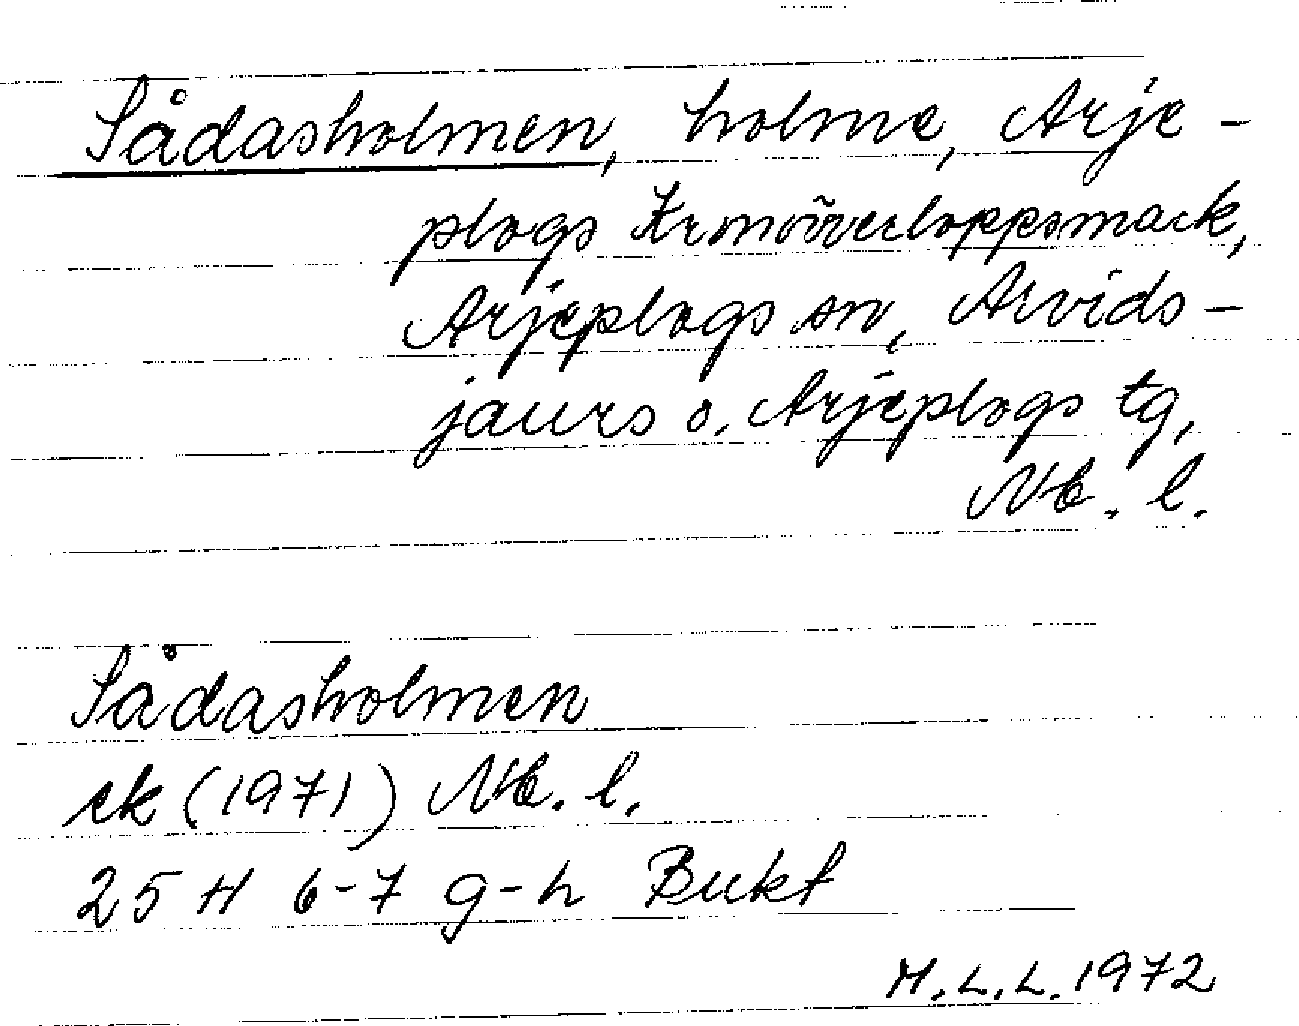 Sådasholmen, holme, Arje-
plogs Kronoöverloppsmark,
Arjeplogs sn, Arvids-
jaurs o. Arjeplogs tg,
Nb. l.
Sådasholmen
ek (1971) Nb. l.
25 H 6-7 g-h Bukt
M.L.L. 1972